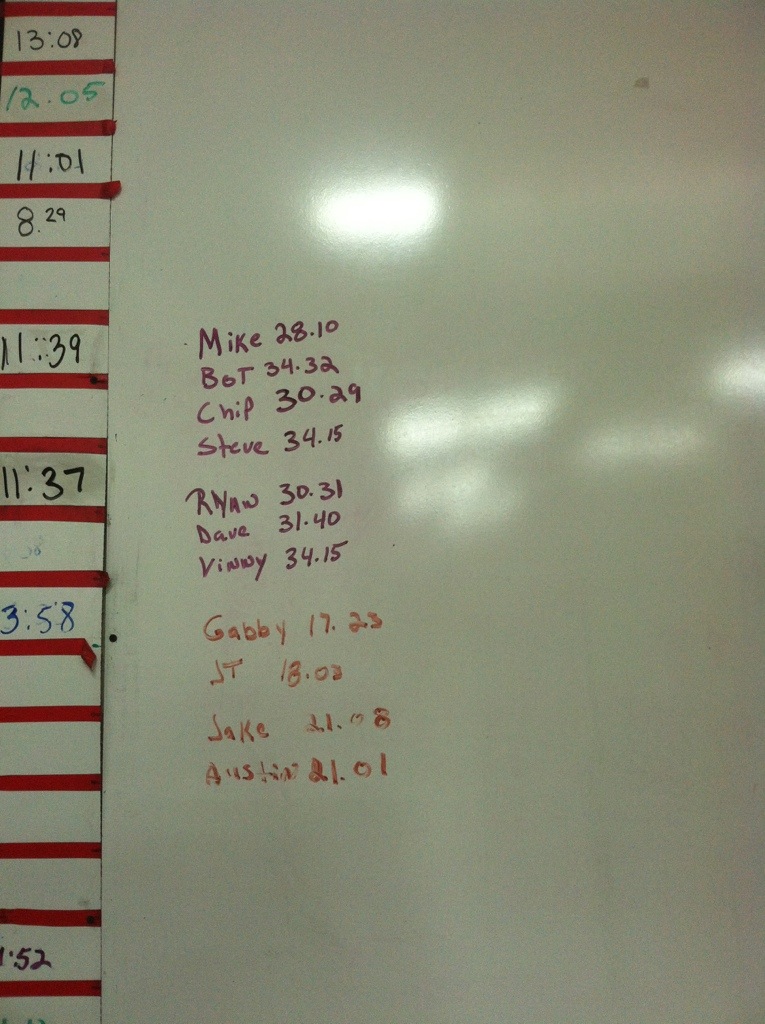 13:08
12.05
11:01
8.29
11:39
11:37
3:58
1:52
Mike 28.10
BoT 34.32
Chip 30.29
Steve 34.15
RYAN 30.31
Dave 31.40
Vinny 34.15
Gabby 17.23
JT 18.03
Jake 21.08
Austin 21.01